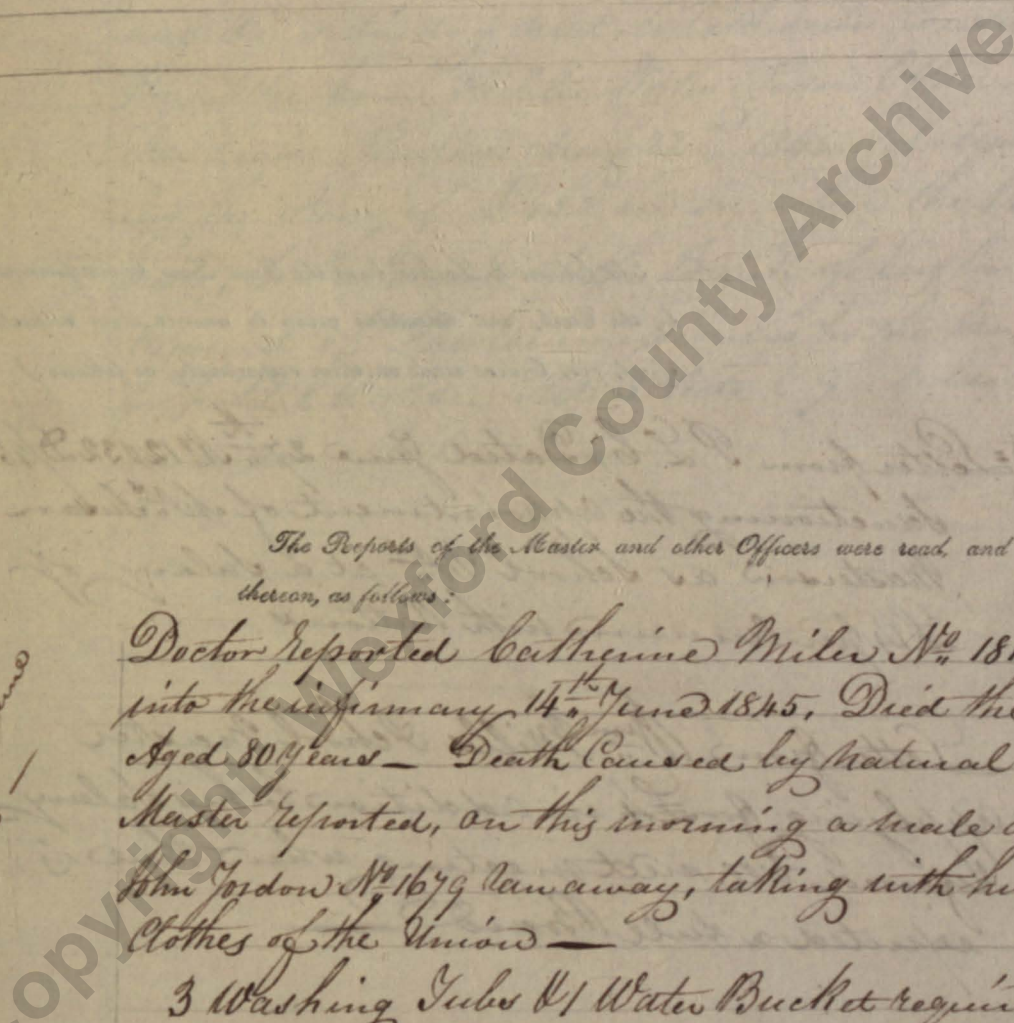 The Reports of the Master and other Officers were read, and
thereon, as follows:
Doctor reported Catherine Miler No 181
into the infirmary 14th June 1845. Died the
Aged 80 Years — Death Caused by Natural
Master reported, on this morning a male
John Jordon No 1679 ran away, taking with hi
Clothes of the Union —
3 Washing Tubs & 1 Water Bucket requir
opyright Wexford County Archive